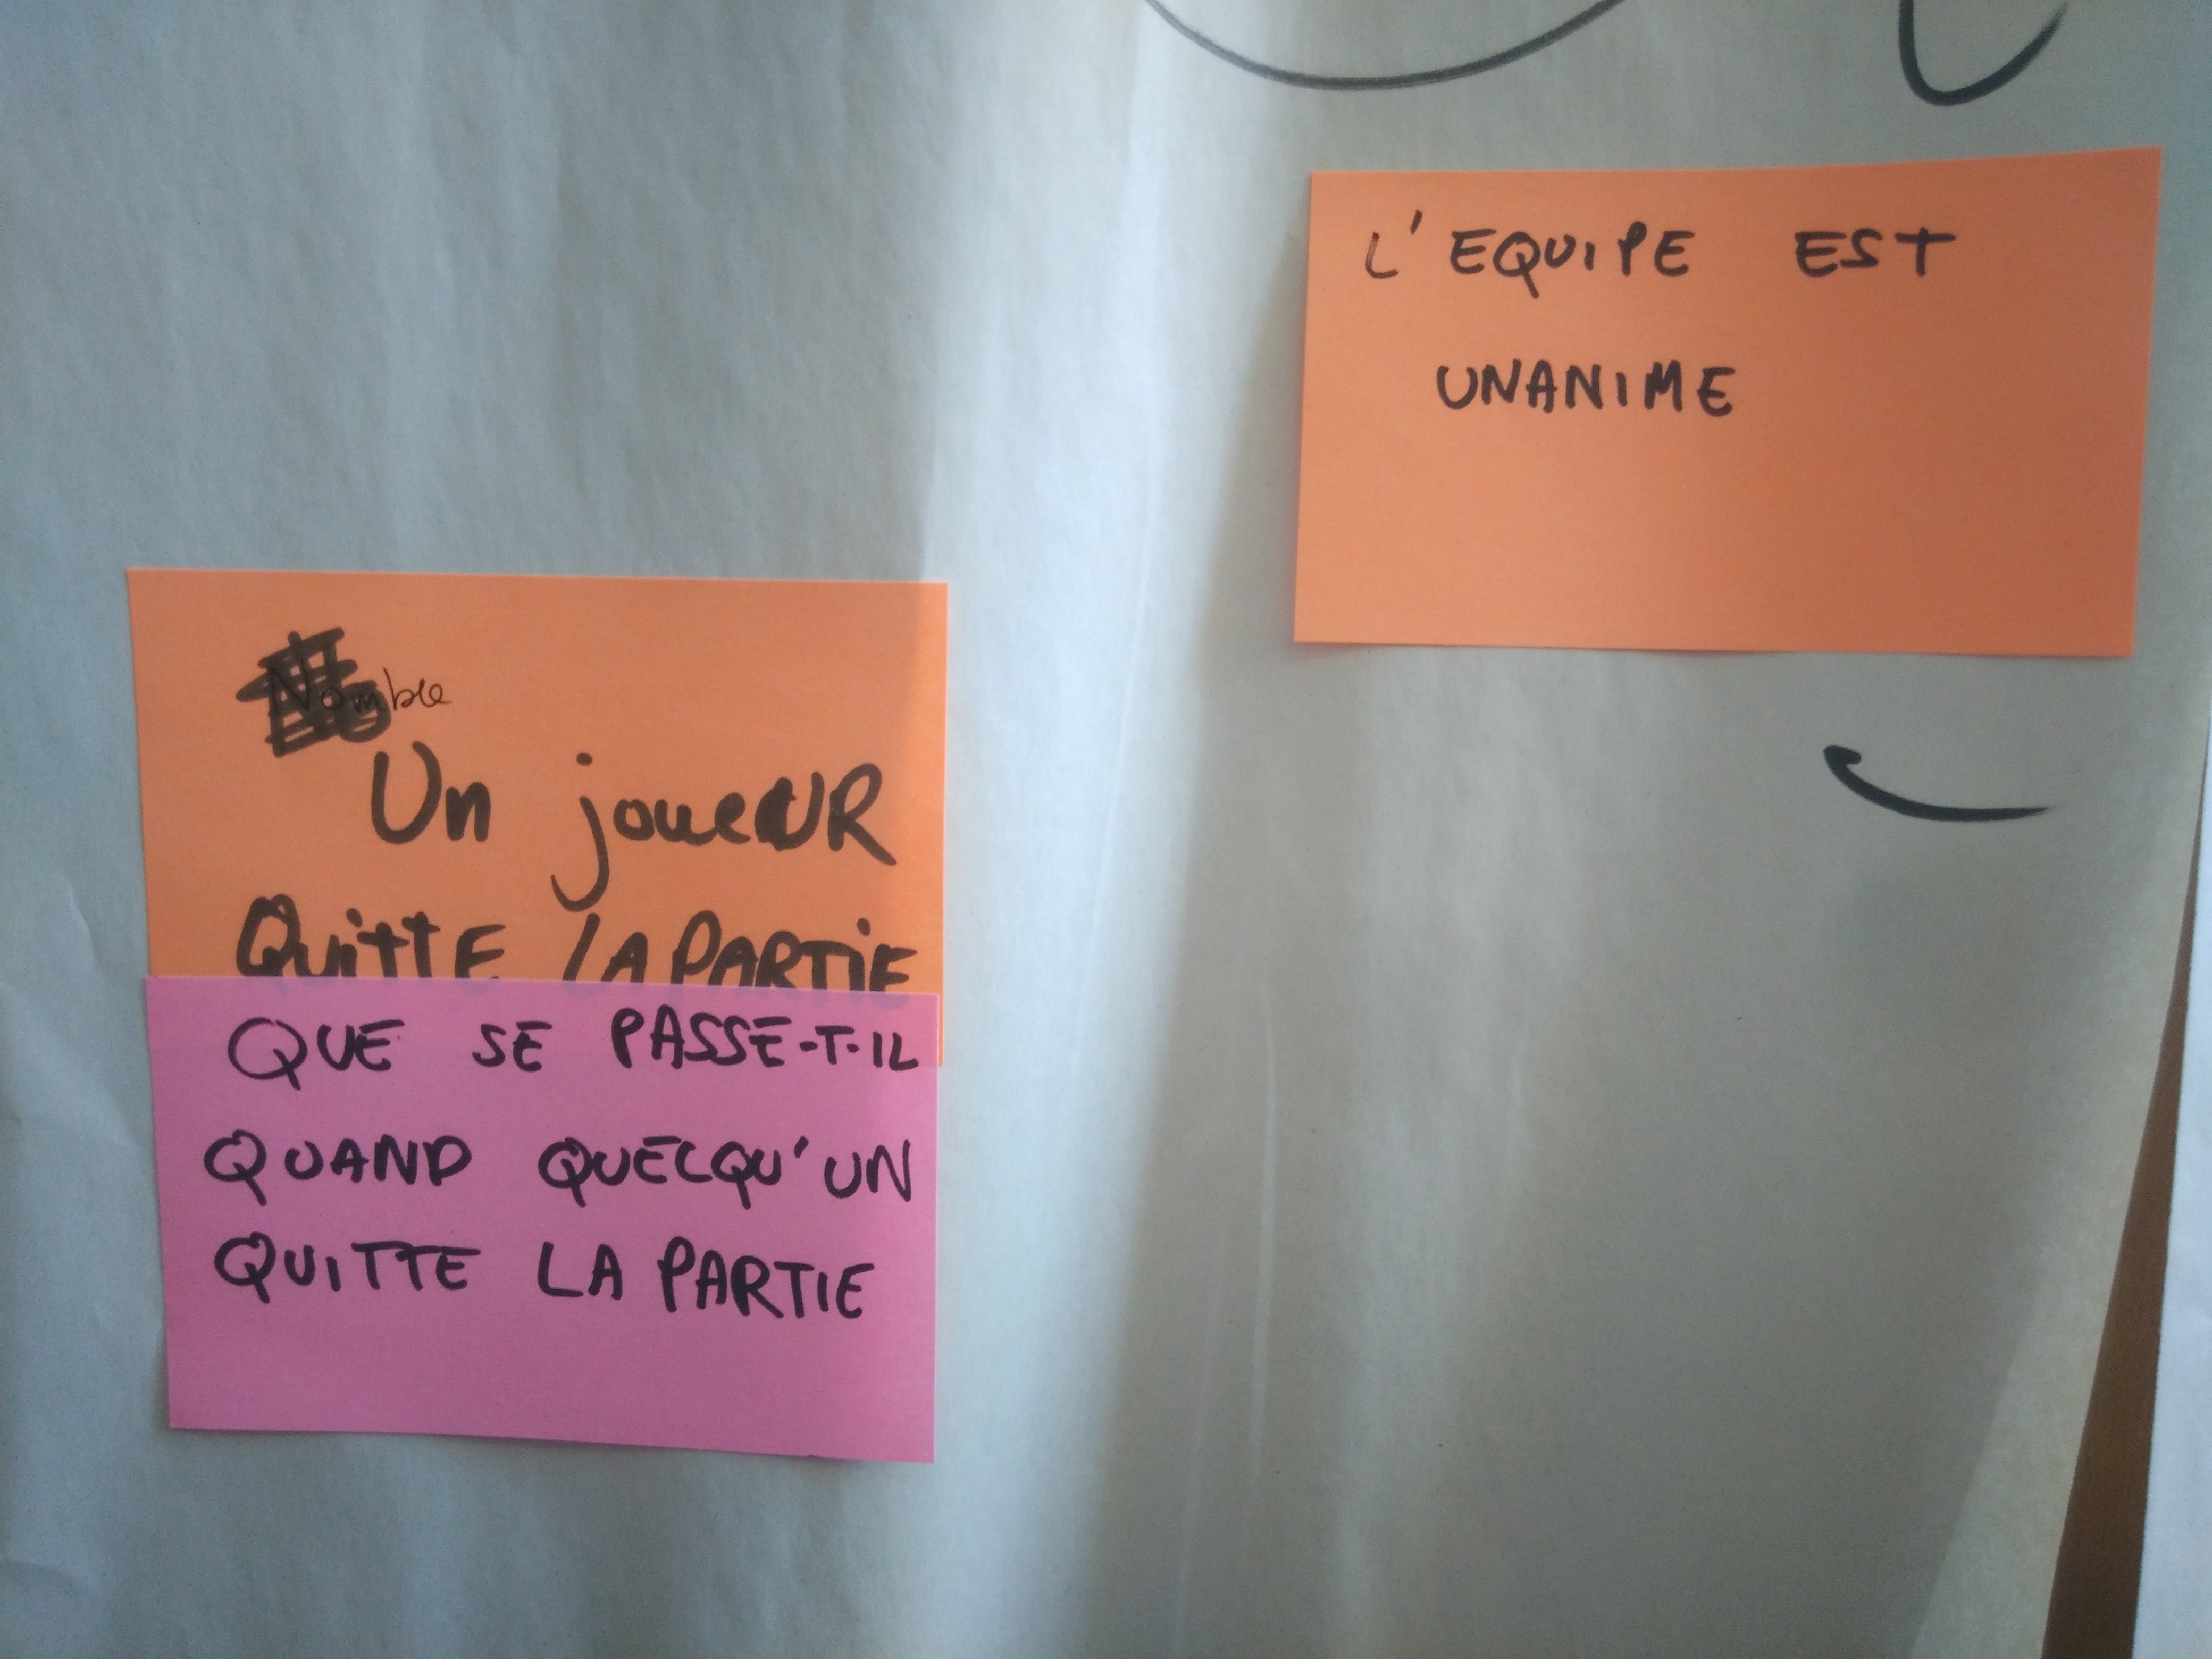 L'EQUIPE EST
UNANIME
Nombre
Un joueUR
QuittE LA PARTiE
QUE SE PASSE-T-IL
QUAND QUELQU'UN
QUITTE LA PARTIE